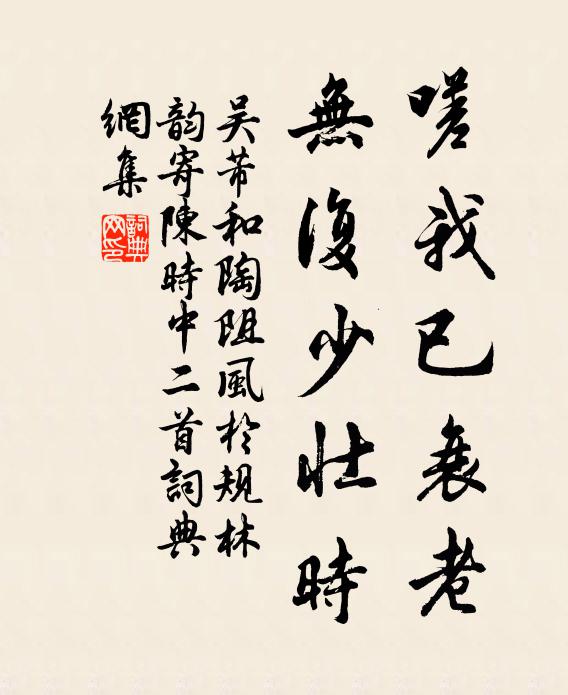 嗟我已衰老
無復少壯時
吴芾和陶阻風於規林
韵寄陳時中二首詞典
網集
詞典網印